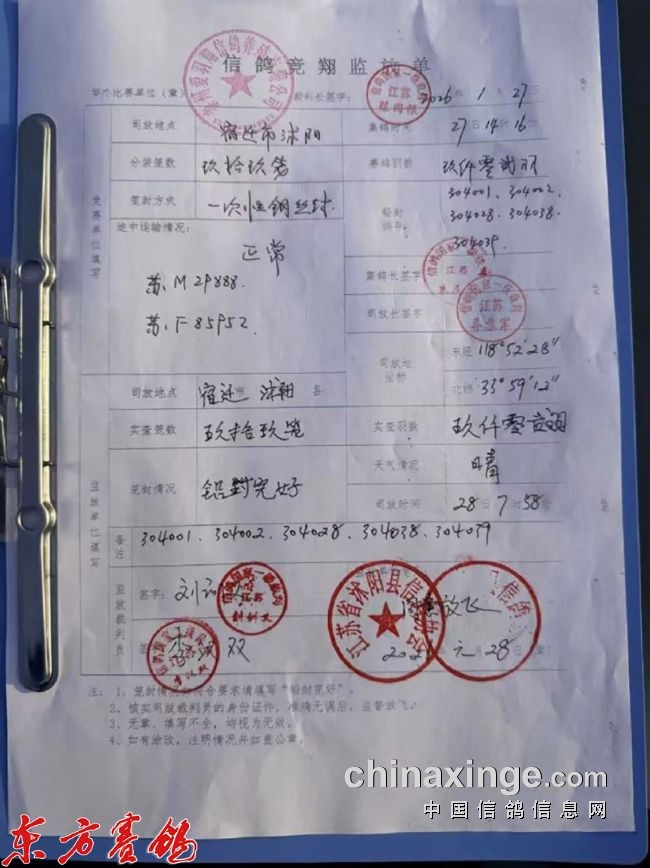 信鸽竞翔监放单
举办比赛单位（章）
裁判长签字：
2026年1月27日
司放地点 宿迁市沭阳
集鸽时间 27日14时16分
分装笼数 玖拾玖笼
赛鸽羽数 玖仟零贰羽
笼封方式 一次性钢丝封
铅封编号：
304001、304002、
304028、304038、
304039、
竞赛单位填写
途中运输情况：
正常
苏.M29888.
苏.F85952.
集鸽长签字
江苏
司放长签字
江苏
司放地坐标
东经 118°52′28″
北纬 33°59′12″
司放地点 宿迁市 沭阳县
实查笼数 玖拾玖笼
实查羽数 玖仟零贰羽
笼封情况 铅封完好
天气情况 晴
司放时间 28日7时58分
监放单位填写
备注 304001、304002、304028、304038、304039
监放裁判员
签字：刘
双
江苏省沭阳县信鸽
放飞
元月28日（章）
注：1、笼封情况如符合要求请填写“铅封完好”。
2、核实司放裁判员的身份证件，准确无误后，监督放飞。
3、无章、填写不全，均视为无效。
4、如有涂改，注明情况并加盖公章。
chinaxinge.com
中国信鸽信息网
东方赛鸽